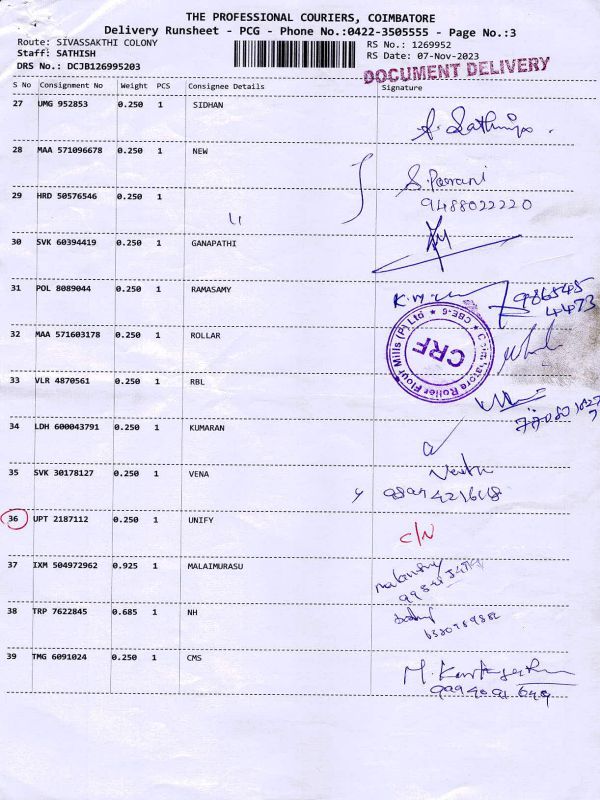 THE PROFESSIONAL COURIERS, COIMBATORE
Delivery Runsheet - PCG - Phone No.:0422-3505555 - Page No.:3
Route: SIVASSAKTHI COLONY
RS No.: 1269952
Staff: SATHISH
RS Date: 07-Nov-2023
DRS No.: DCJB126995203
DOCUMENT DELIVERY
S No Consignment No Weight PCS Consignee Details Signature
27 UMG 952853 0.250 1 SIDHAN
28 MAA 571096678 0.250 1 NEW
S. Poorani
29 HRD 50576546 0.250 1
9488022220
30 SVK 60394419 0.250 1 GANAPATHI
31 POL 8089044 0.250 1 RAMASAMY
986545
4473
32 MAA 571603178 0.250 1 ROLLAR
Coimbatore Roller Flour Mills (P) Ltd * CBE-6 *
CRF
33 VLR 4870561 0.250 1 RBL
34 LDH 600043791 0.250 1 KUMARAN
35 SVK 30178127 0.250 1 VENA
36 UPT 2187112 0.250 1 UNIFY
C/N
37 IXM 504972962 0.925 1 MALAIMURASU
38 TRP 7622845 0.685 1 NH
39 TMG 6091024 0.250 1 CMS